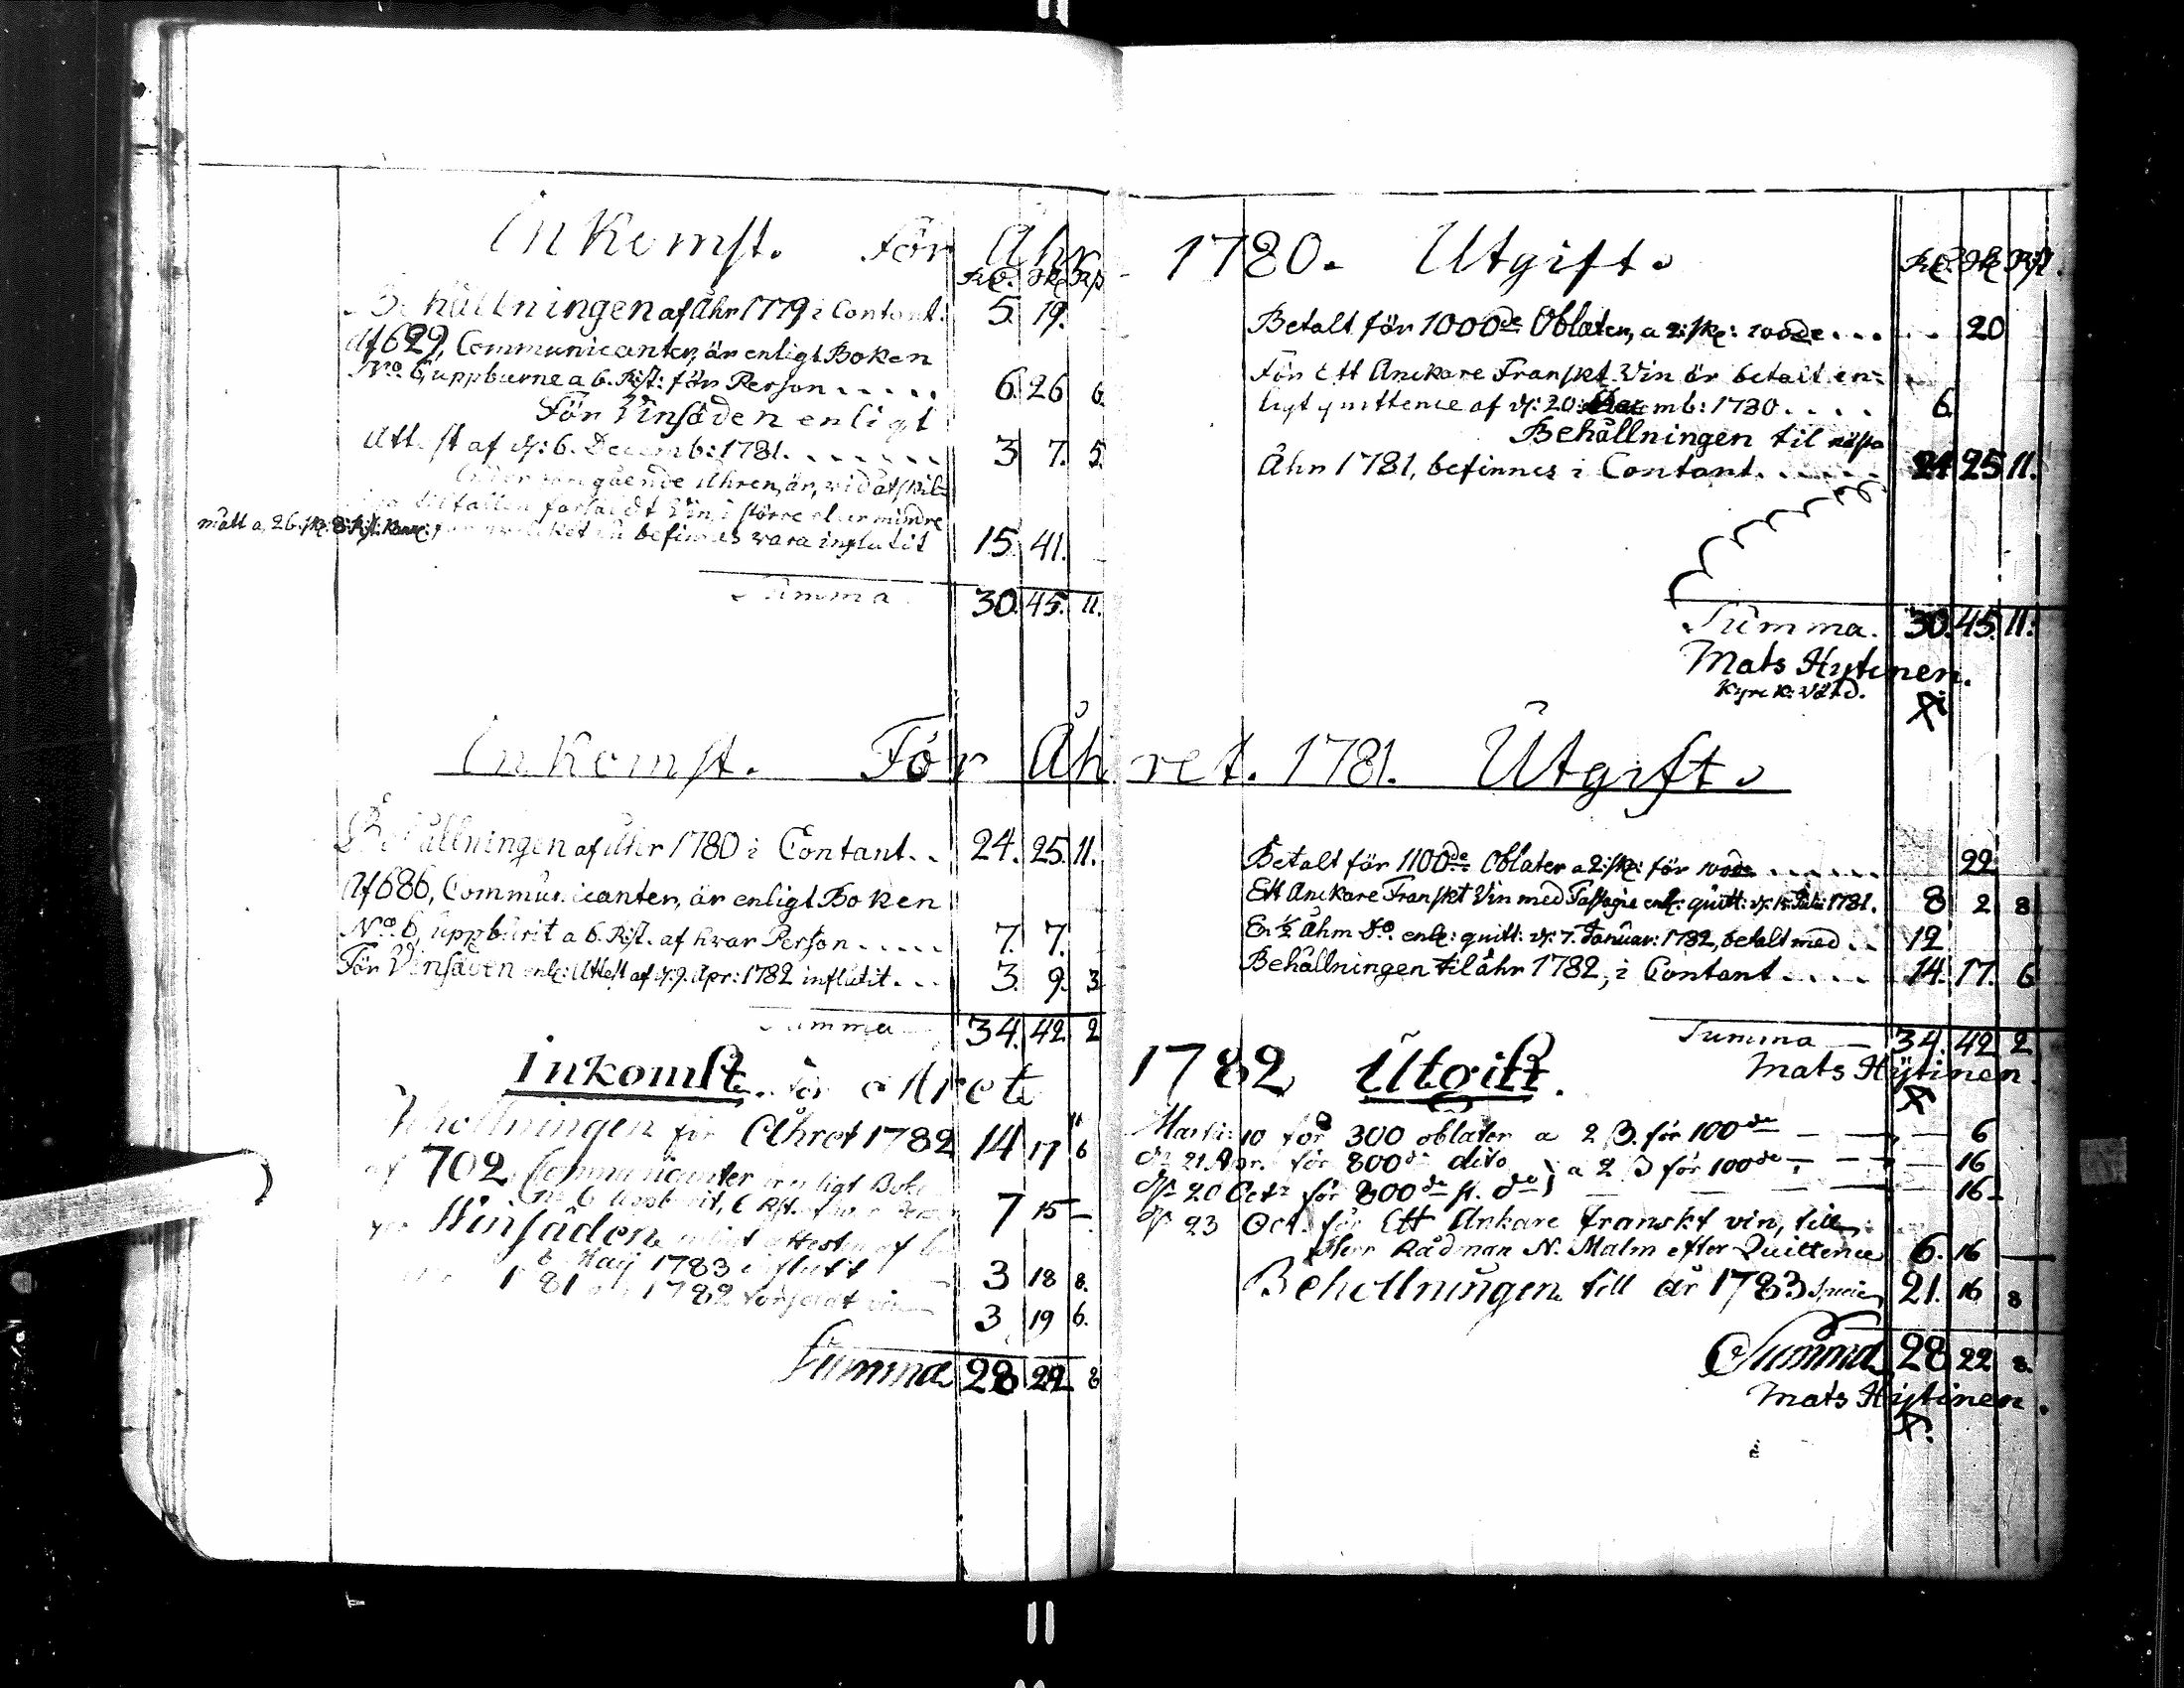 Inkomst. För Åhr
Rd. Sk. Rst
Behållningen af Åhr 1779 i Contant. 5. 19.
Af 629, Communicanter, är enligt Boken
No. 6, uppburne a 6. Rst: för Person ..... 6. 26 6.
För Vinsäden enligt
Attest af d: 6. Decemb: 1781. ...... 3 7. 5.
gående Åhren, är, vid åtskil-
tilfällen försåldt Vin, i större eller mindre
mått a, 26. sk: 8: Rst. Kan: befinnes vara influtit 15. 41.
Summa 30. 45. 11.
Inkomst. För Åh
Behållningen af åhr 1780 i Contant. . 24. 25. 11.
Af 686, Communicanter, är enligt Boken
No. 6, uppburit a 6. Rst. af hvar Person ..... 7. 7.
För Vinsäden enl: Attest af d: 9. Apr: 1782 influtit. . . 3. 9. 3
Summa 34. 42. 2
Inkomst för Året
Behollningen för Åhret 1782 14 17 6
af 702 Communicanter enligt Boken
No 6 uppburit, 6 Rst. 7 15 —
Winsäden enligt attesten af
8 Maij 1783 influtit 3 18 8.
1781 1782 försåldt vin 3 19 6.
Summa 28 22 8
1780. Utgift.
Rd. Sk. Rst.
Betalt för 1000de Oblater, a 2: sk: 100de ... . . 20
För Ett Anckare Franskt Vin är betalt en-
ligt quittence af d: 20: Decemb: 1780. . . . 6.
Behållningen til nästa
Åhr 1781, befinnes i Contant. ..... 24 25 11.
Summa. 30. 45. 11.
Mats Hytinen.
Kyrck: Värd.
ret. 1781. Utgift.
Betalt för 1100de Oblater a 2: sk: för 100de ..... 22
Ett Anckare Franskt Vin med Fastagie enl: quitt: d: 15. Julii 1781. 8 2 8
En ½ Åhm do. enl: quitt: d: 7. Januar: 1782, betalt med . . 12
Behållningen til åhr 1782, i Contant .... 14. 17. 6
Summa — 34. 42 2
Mats Hÿtinen.
1782 Utgift.
Martii 10 för 300 oblater a 2 ß. för 100de — — — 6
d: 21 Apr. för 800de dito a 2 ß för 100de — — — 16
d: 20 Octr för 800de st. do — — — 16 —
d: 23 Oct. för Ett Ankare Franskt vin, till
Herr Rådman N. Malm efter Quittence 6. 16 —
Behollningen till år 1783 21. 16 8
Summa 28 22 8.
Mats Hÿtinen.